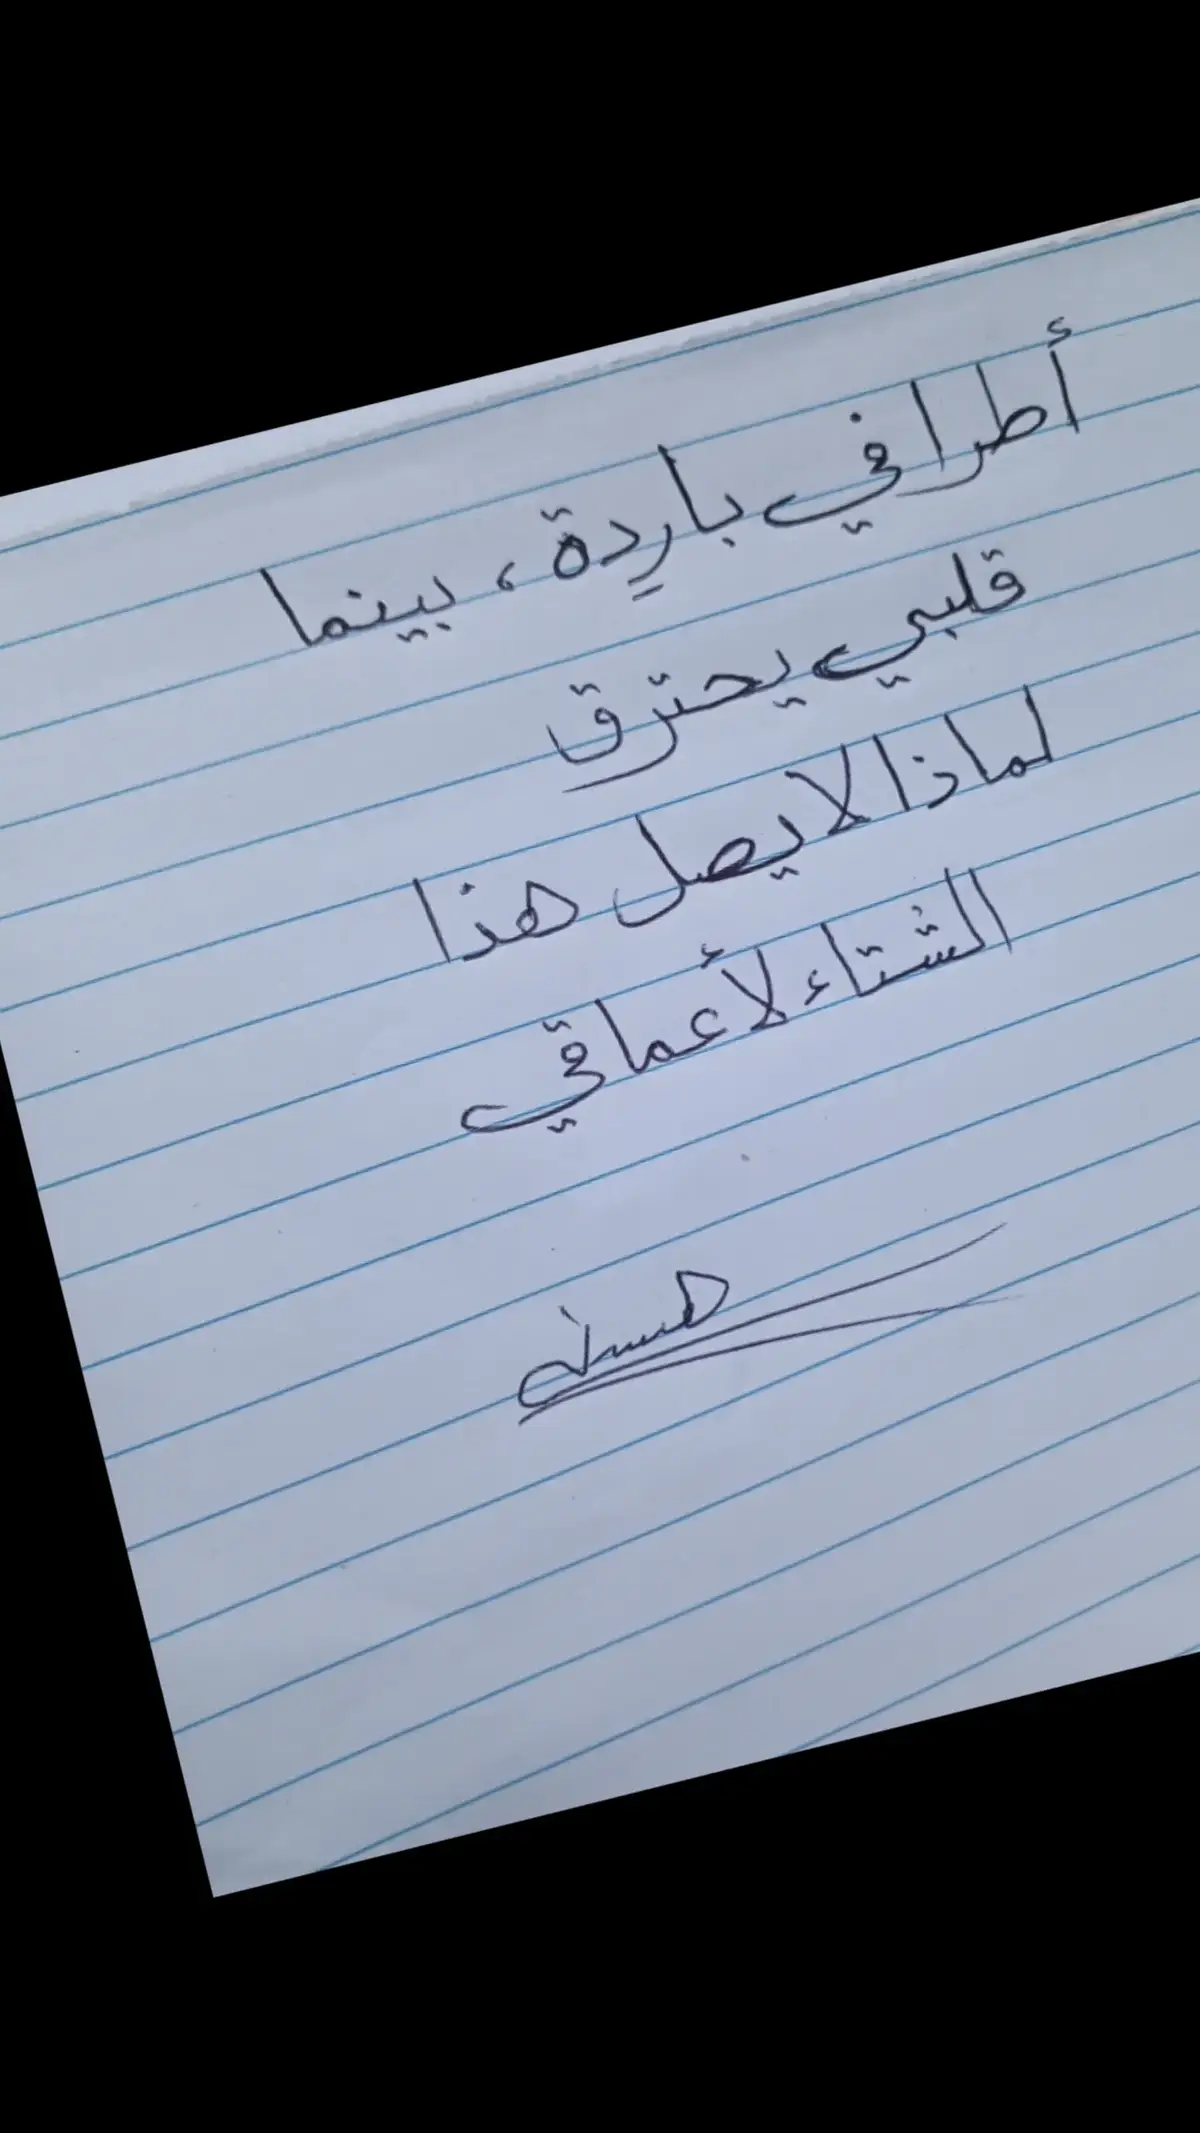 أطرافي بارِدة، بينما
قلبي يحترق
لماذا لا يصل هذا
الشتاء لأعماقي